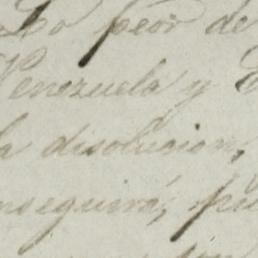 Lo peor de
Venezuela y
la disolucion,
nseguirá, pu